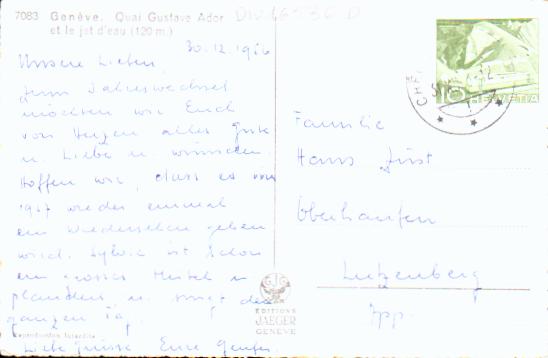 7083 Genève. Quai Gustave Ador
et le jet d'eau (120 m.)
30.12.1966
Unsere Lieben,
zum Jahreswechsel
möchten wir Euch
von Herzen alles gute
u. Liebe u. wünschen.
Hoffen wir, dass es
1967 wieder einmal
ein Wiedersehen geben
wird. Sylvia ist schon
ein grosses
plaudert u. singt den
ganzen Tag.
Liebe Grüsse Eure Genfer.
Familie
Hans Jüst
Oberhaufen
Lutzenberg
App.
HELVETIA
10
EDITIONS
JAEGER
GENÈVE
Reproduction interdite